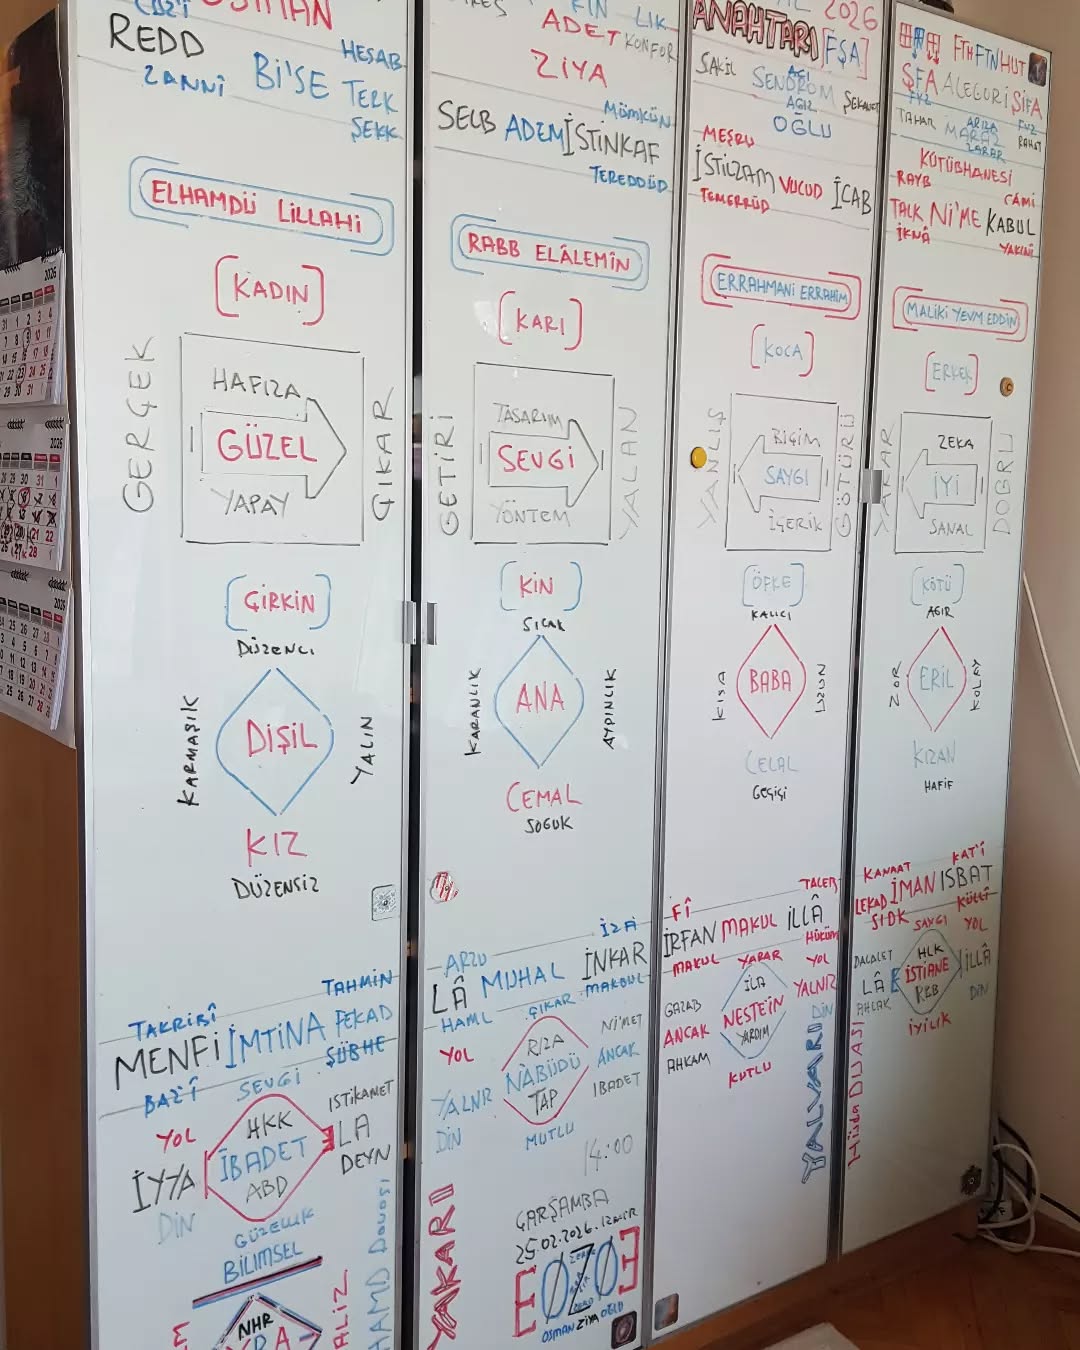 OSMAN
REDD
HESAB
ZANNİ
Bİ'SE
TERK
ŞEKK
ELHAMDÜ LİLLAHİ
[KADIN]
GERÇEK
HAFIZA
GÜZEL
YAPAY
ÇIKAR
[ÇİRKİN]
DÜZENCİ
KARMAŞIK
DİŞİL
YALIN
KIZ
DÜZENSİZ
TAHMİN
TAKRİBÎ
MENFİ İMTİNA FEKAD
BAZ'Î
ŞÜBHE
SEVGİ
İSTİKAMET
YOL
HKK
LA
İYYA
İBADET
DEYN
ABD
DİN
GÜZELLİK
BİLİMSEL
NHR
HAMD DUASI
LİK
ADET KONFOR
ZİYA
MÜMKÜN
SELB ADEM İSTİNKAF
TEREDDÜD
RABB ELÂLEMİN
[KARI]
GETİRİ
TASARIM
SEVGİ
YÖNTEM
YALAN
[KİN]
SICAK
KARANLIK
ANA
AYDINLIK
CEMAL
SOĞUK
İZÂ
ARZU
LÂ MUHAL İNKAR
HAML
ÇIKAR
MAKBUL
YOL
RIZA
Nİ'MET
YALNIZ
NABÜDÜ
ANCAK
TAP
İBADET
DİN
MUTLU
14:00
ÇARŞAMBA
25.02.2026.İZMİR
YAKARI
E0Z03
OSMAN ZİYA OĞLU
2026
ANAHTARI [FŞA]
ŞAKİL
AĞI
SENDROM
AĞIZ
OĞLU
MEŞRU
İSTİLZAM VUCUD İCAB
TEMERRÜD
ERRAHMANİ ERRAHİM
[KOCA]
YANLIŞ
BİÇİM
SAYGI
İÇERİK
GÖTÜRÜ
[ÖFKE]
KALICI
KISA
BABA
UZUN
CELAL
GEÇİÇİ
FÎ
TALEB
İRFAN MAKUL İLLÂ
MAKUL
YARAR
HÜKÜM
YOL
İLA
GAZAB
NESTEİN
YALNIZ
ANCAK
YARDIM
DİN
AHKAM
KUTLU
YALVARI
FTH FTN HUT
ŞFA ALEGORİ ŞİFA
TAHAR
ARIZA
MARAZ
ZARAR
RAHAT
KÜTÜBHANESİ
RAYB
CAMİ
TALK Nİ'ME KABUL
İKNÂ
YAKINÎ
MALİKİ YEVM EDDİN
[ERKEK]
YAKAR
ZEKA
İYİ
SANAL
DOĞRU
[KÖTÜ]
AĞIR
ZOR
ERİL
KOLAY
KIZAN
HAFİF
KANAAT
KAT'Î
LEKAD İMAN ISBAT
SIDK
KÜLLÎ
SAYGI
YOL
DALALET
HLK
İLLÂ
LÂ
İSTİANE
AHLAK
DİN
İYİLİK
Hüda DUASI